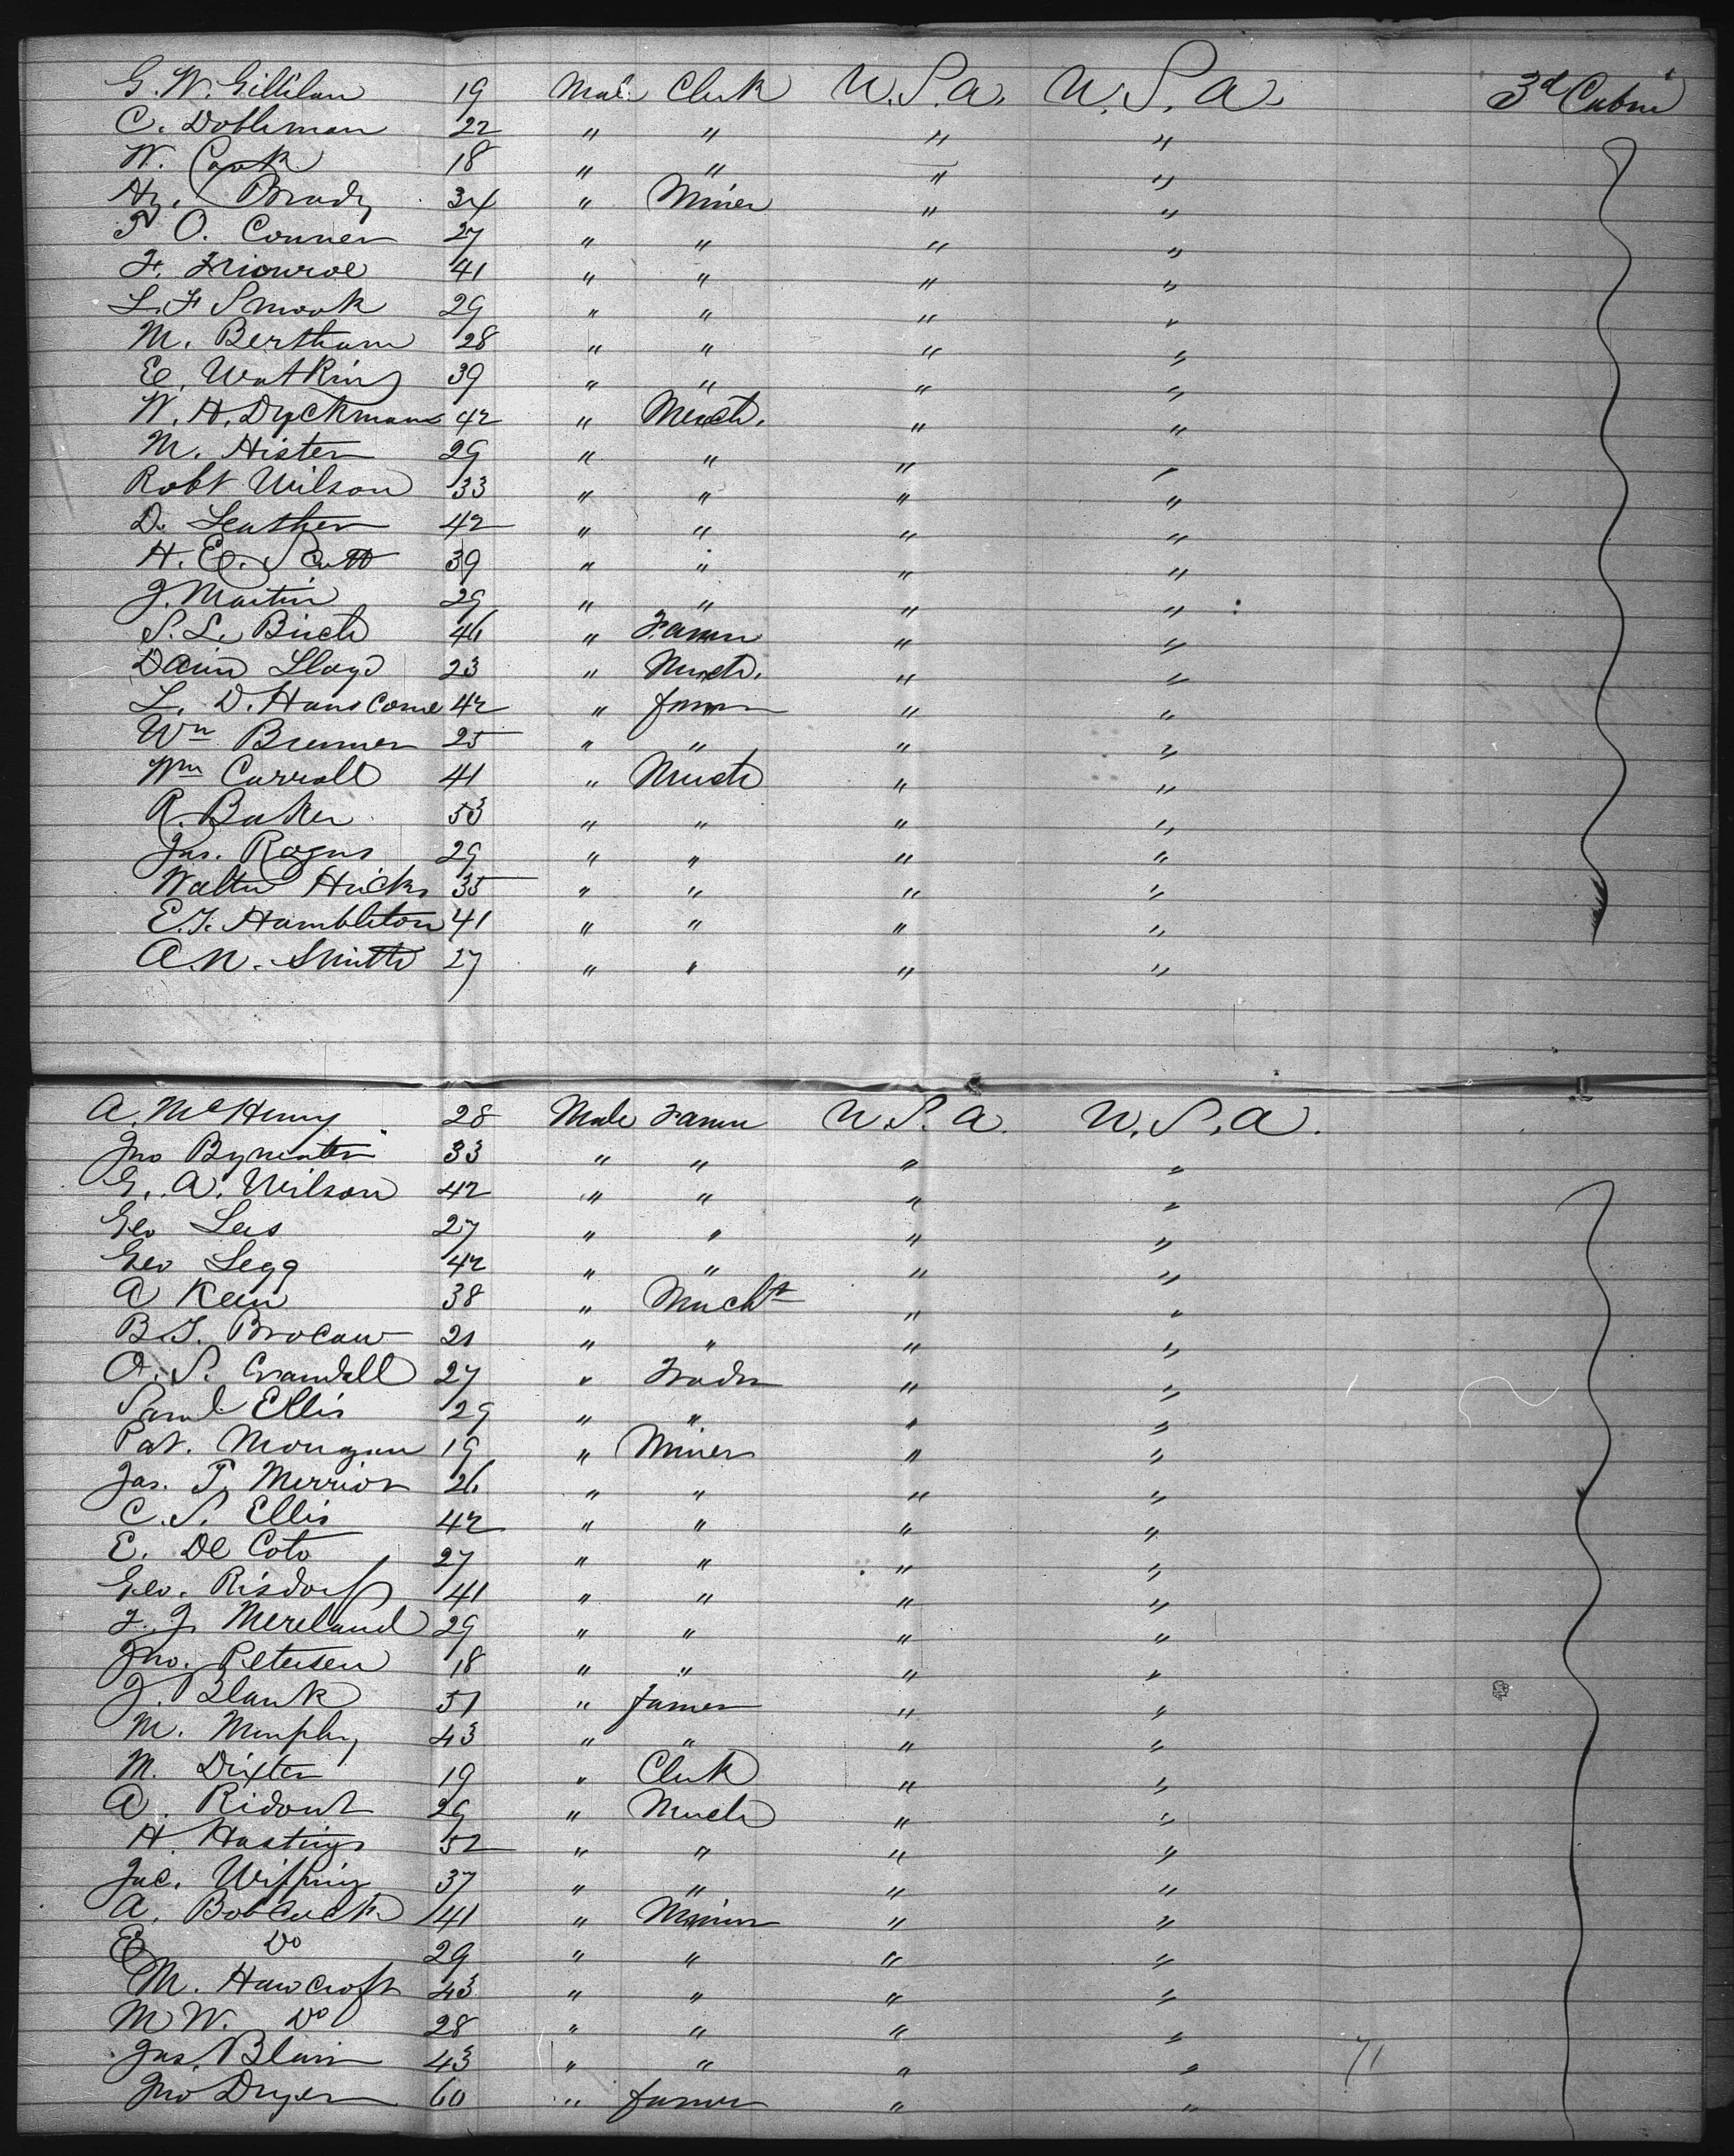 G. W. Gillilan 19 Male Clerk U.S.A. U.S.A. 3d Cabin
C. Dobleman 22 " " " "
W. Cook 18 " " " "
Hy. Brady 34 " Miner " "
T O. Conner 27 " " " "
F. Monroe 41 " " " "
L. F Smook 29 " " " "
M. Bertham 28 " " " "
E. Watkins 39 " " " "
W. H. Dyckman 42 " Merch. " "
M. Hister 29 " " " "
Robt Wilson 33 " " " "
D. Leather 42 " " " "
H. E. Scott 39 " " " "
J. Martin 29 " " " "
S. L. Birch 46 " Farmer " "
Lloyd 23 " Merch. " "
L. D. Hanscome 42 " farmer " "
Wm Brenner 25 " " " "
Wm Carroll 41 " Merch " "
R. Baker 53 " " " "
Jas. Rogers 29 " " " "
Walter Hicks 35 " " " "
E. T. Hambleton 41 " " " "
A. N. Smith 27 " " " "
A. McHenry 28 Male Farmer U.S.A. U.S.A.
Jno 33 " " " "
G. A. Wilson 42 " " " "
Geo Lees 27 " " " "
Geo Legg 42 " " " "
A Keen 38 " Mercht " "
B. T. Brocaw 21 " " " "
O. S. Crandall 27 " Trader " "
Saml. Ellis 29 " " " "
Pat. Mongan 19 " Miner " "
Jas. T. Merrior 26 " " " "
C. S. Ellis 42 " " " "
E. De Coto 27 " " " "
Geo. Risdorf 41 " " " "
F. J. Mereland 29 " " " "
Jno. Petersen 18 " " " "
J. Blank 51 " farmer " "
M. Murphy 43 " " " "
M. Dixter 19 " Clerk " "
A. Ridout 29 " Merch " "
H. Hastings 52 " " " "
Jac. 37 " " " "
A. Bobcock 41 " Miner " "
E Do 29 " " " "
M. Hawcroft 43 " " " "
M W. Do 28 " " " "
Jas. Blair 43 " " " " 71
Jno Dryer 60 " farmer " "